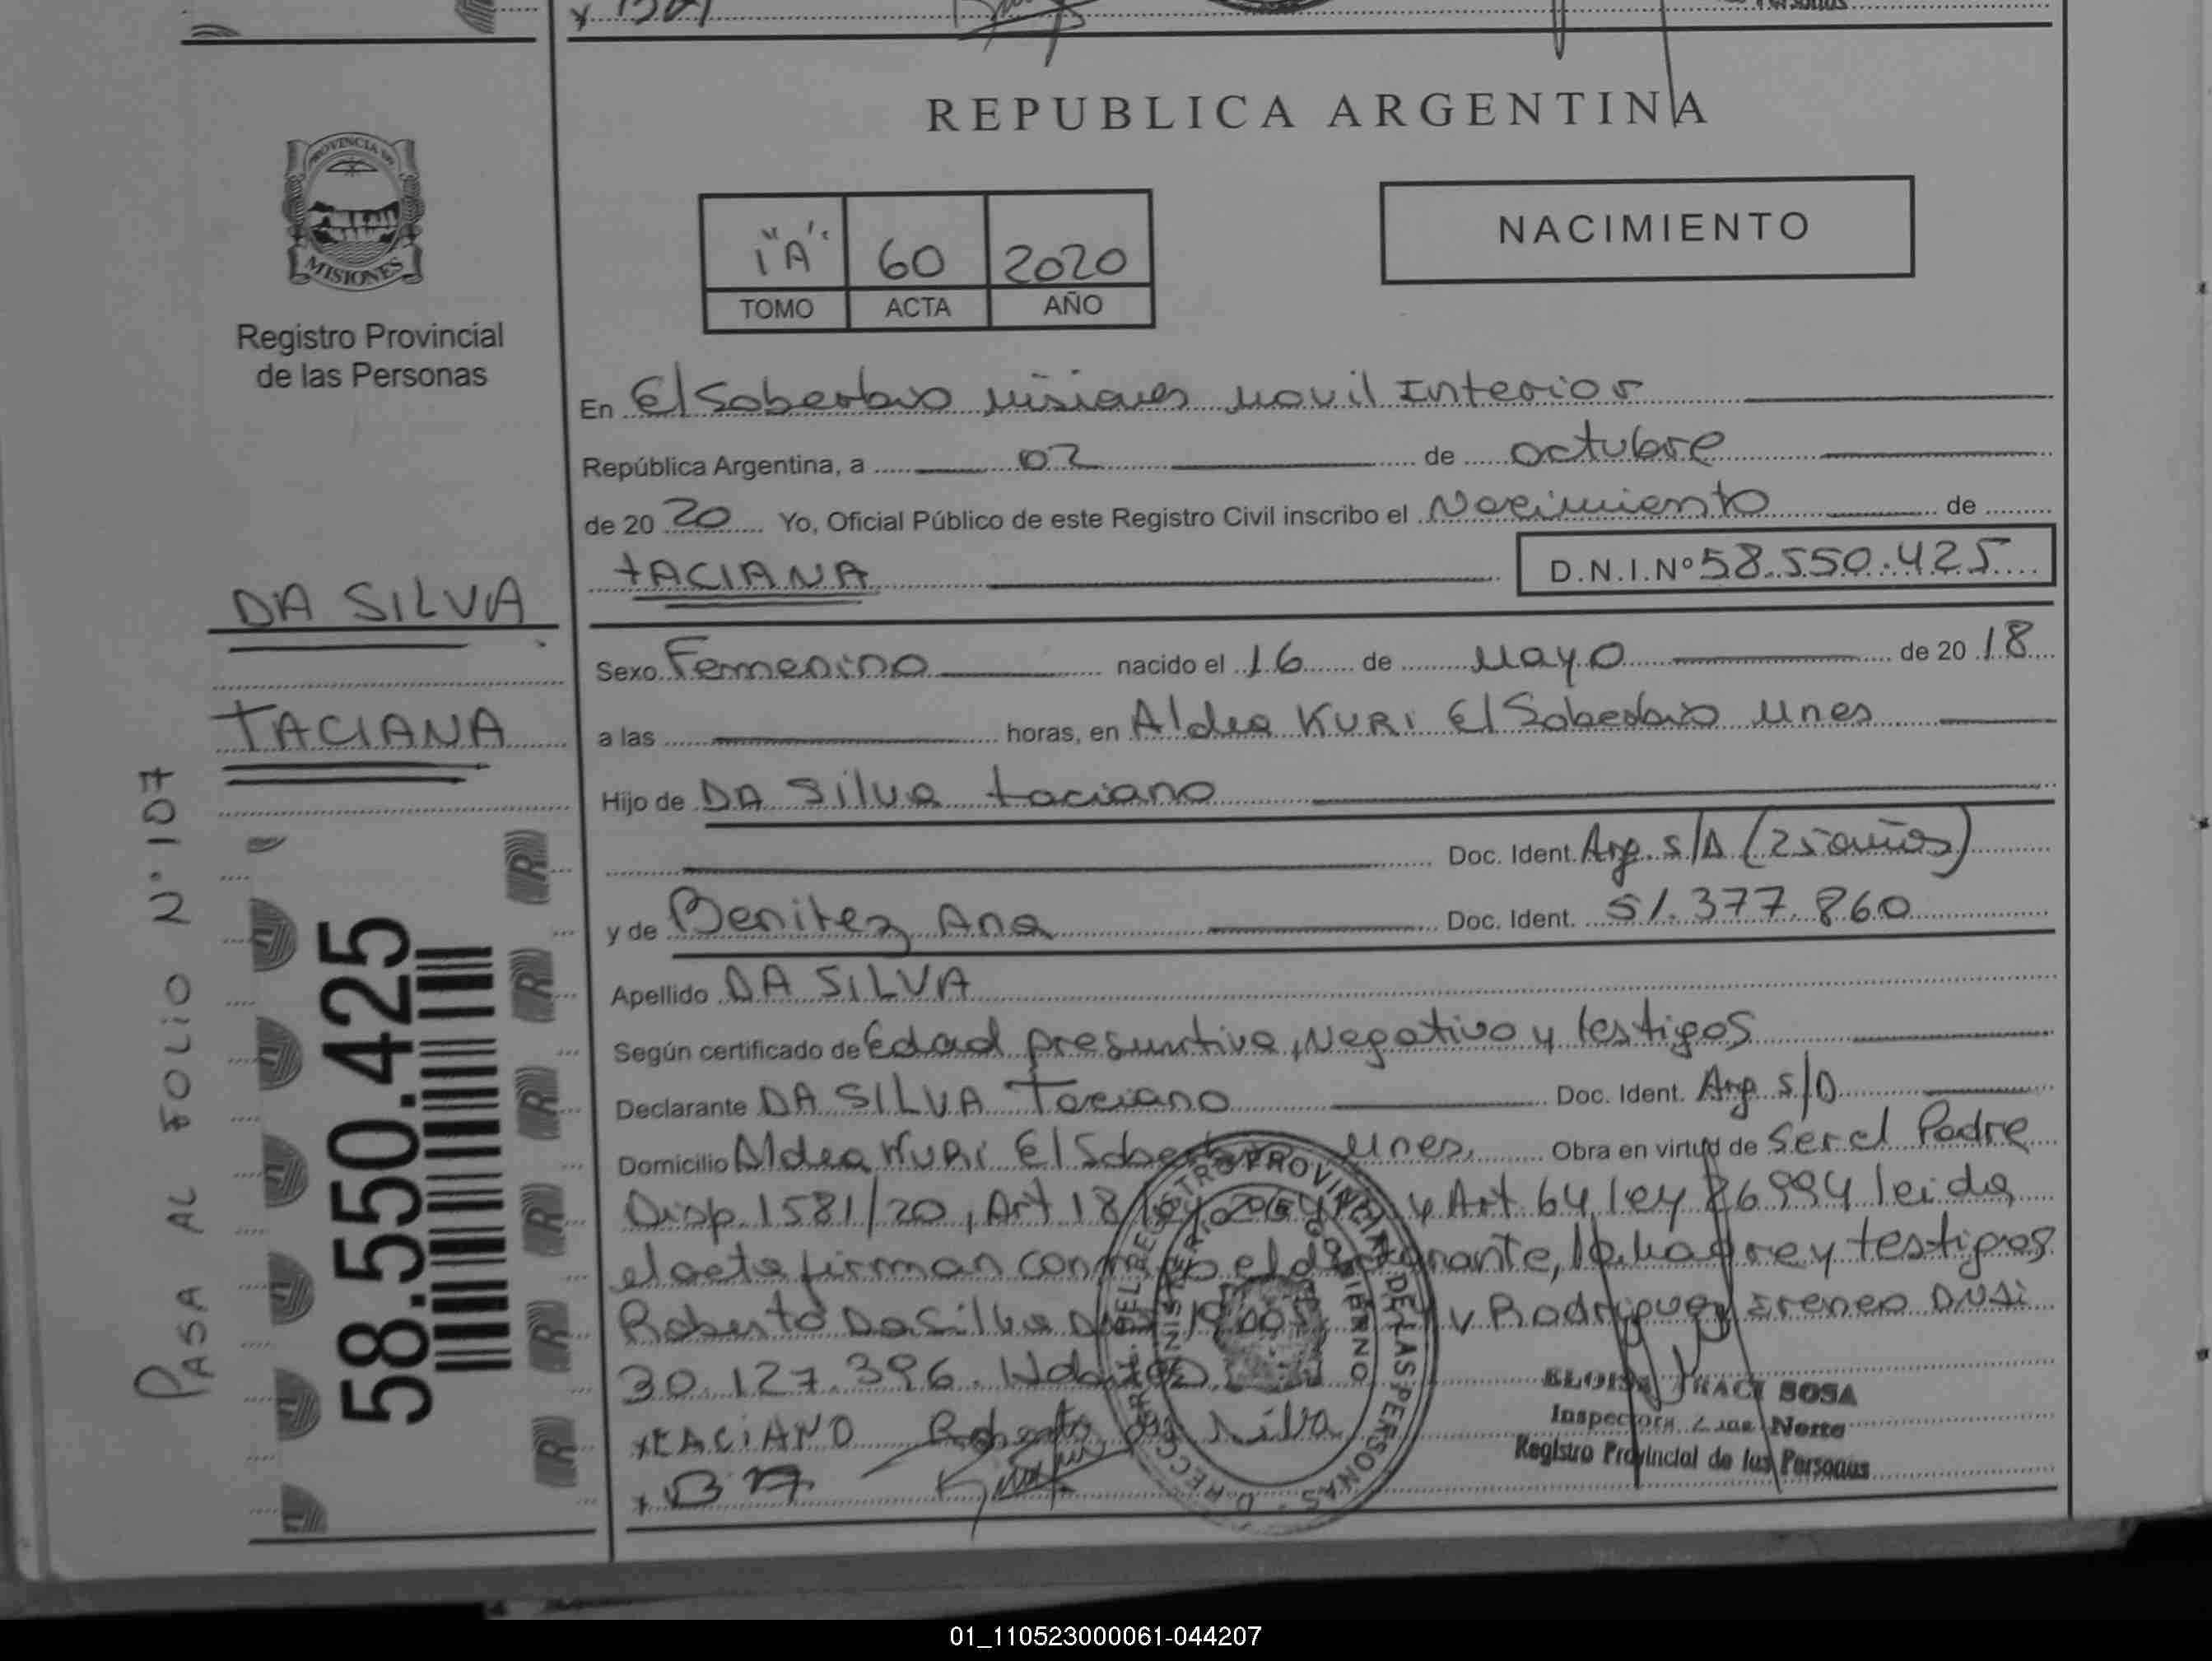 PROVINCIA DE
MISIONES
Registro Provincial
de las Personas
DA SILVA
TACIANA
PASA AL FOLIO N° 107
58.550.425
REPUBLICA ARGENTINA
1"A" 60 2020
TOMO ACTA AÑO
NACIMIENTO
En El Soberbio Misiones Movil Interior
República Argentina, a 02 de octubre
de 20 20 Yo, Oficial Público de este Registro Civil inscribo el Nacimiento de
TACIANA D.N.I.Nº 58.550.425
Sexo Femenino nacido el 16 de Mayo de 20 18
a las horas, en Aldea KURI El Soberbio Mnes
Hijo de DA Silva Taciano
Doc. Ident. Arg. S/D (25 años)
y de Benitez Ana Doc. Ident. 51.377.860
Apellido DA SILVA
Según certificado de Edad presuntiva, Negativo y testigos
Declarante DA SILVA Taciano Doc. Ident. Arg S/D
Domicilio Aldea KURI El Mnes, Obra en virtud de Ser el Padre
Disp. 1581/20, Art 18 y Art 64 ley 26994 leida
el acta firman conmigo el declarante, la madre y testigos
Roberto Da Silva y Rodriguez Ireneo DNI
30.127.396.
x TACIANO Roberto Silva
ELOISA SOSA
Inspectora Zona Norte
Registro Provincial de las Personas
01_110523000061-044207